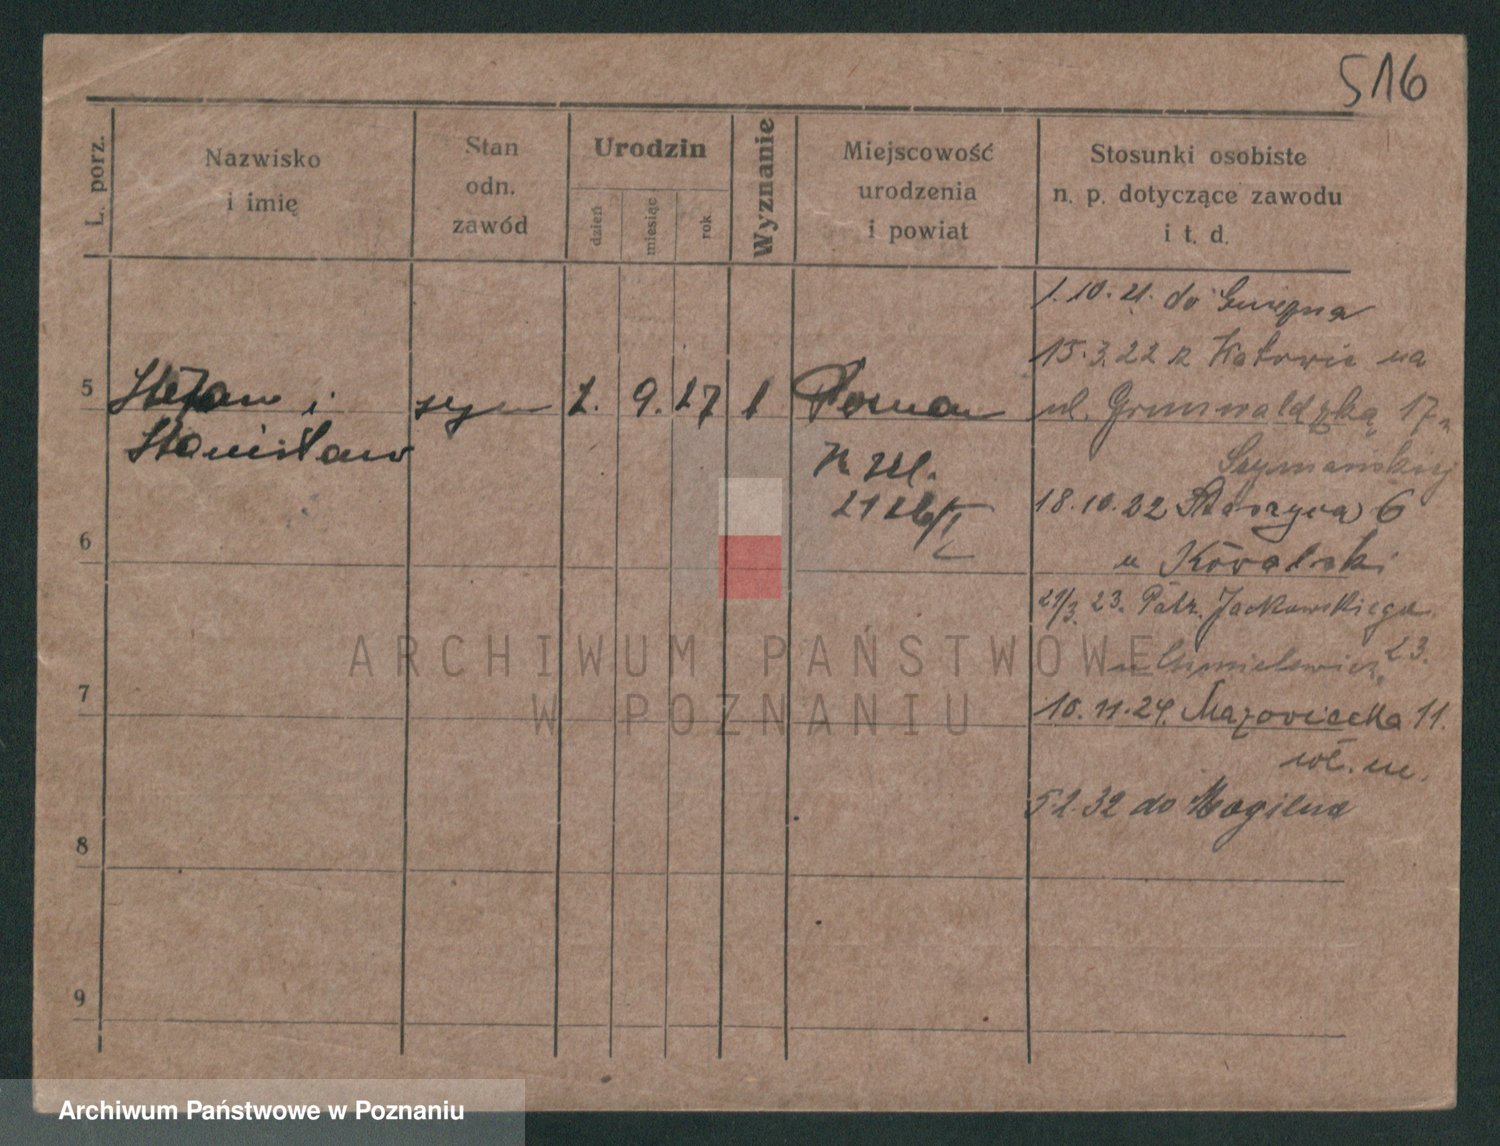 516
L. porz.
Nazwisko
i imię
Stan
odn.
zawód
Urodzin
dzień
miesiąc
rok
Wyznanie
Miejscowość
urodzenia
i powiat
Stosunki osobiste
n. p. dotyczące zawodu
i t. d.
1.10.21. do Gniezna
15.3.22 z Katowic na
5 Stefan i syn 2. 9. 27 Poznan ul. Grunwaldzką 17
Stanisław
Szymańskiej
2126/I
18.10.22 6
6
u Kowalski
21/3. 23. Patr. Jackowskiego
23.
u Chmielewicz
ARCHIWUM PAŃSTWOWE
W POZNANIU
7
10.11.24. Mazowiecka 11.
5.2.32 do Mogilna
8
9
Archiwum Państwowe w Poznaniu